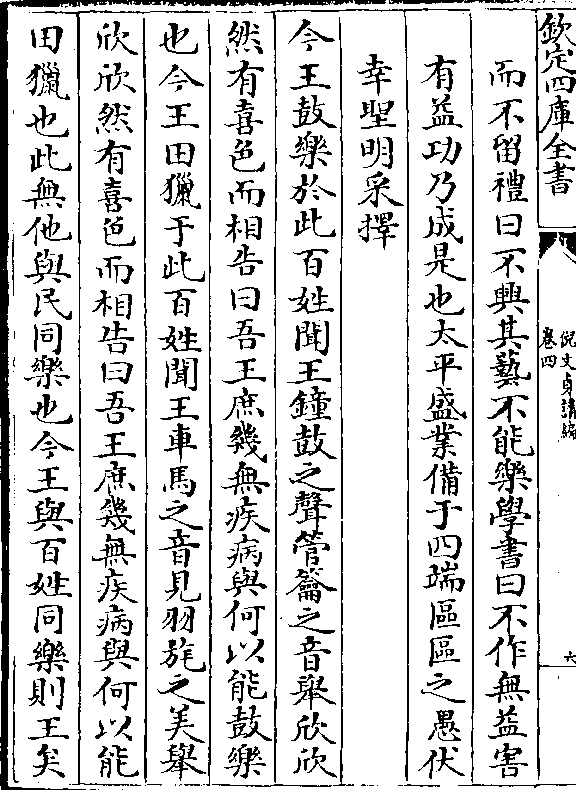 欽定四庫全書
倪文貞講編
卷四
六
而不留禮曰不興其藝不能樂學書曰不作無益害
有益功乃成是也太平盛業備于四端區區之愚伏
幸聖明采擇
今王鼓樂於此百姓聞王鐘鼓之聲管籥之音舉欣欣
然有喜色而相告曰吾王庶幾無疾病與何以能鼓樂
也今王田獵于此百姓聞王車馬之音見羽旄之美舉
欣欣然有喜色而相告曰吾王庶幾無疾病與何以能
田獵也此無他與民同樂也今王與百姓同樂則王矣